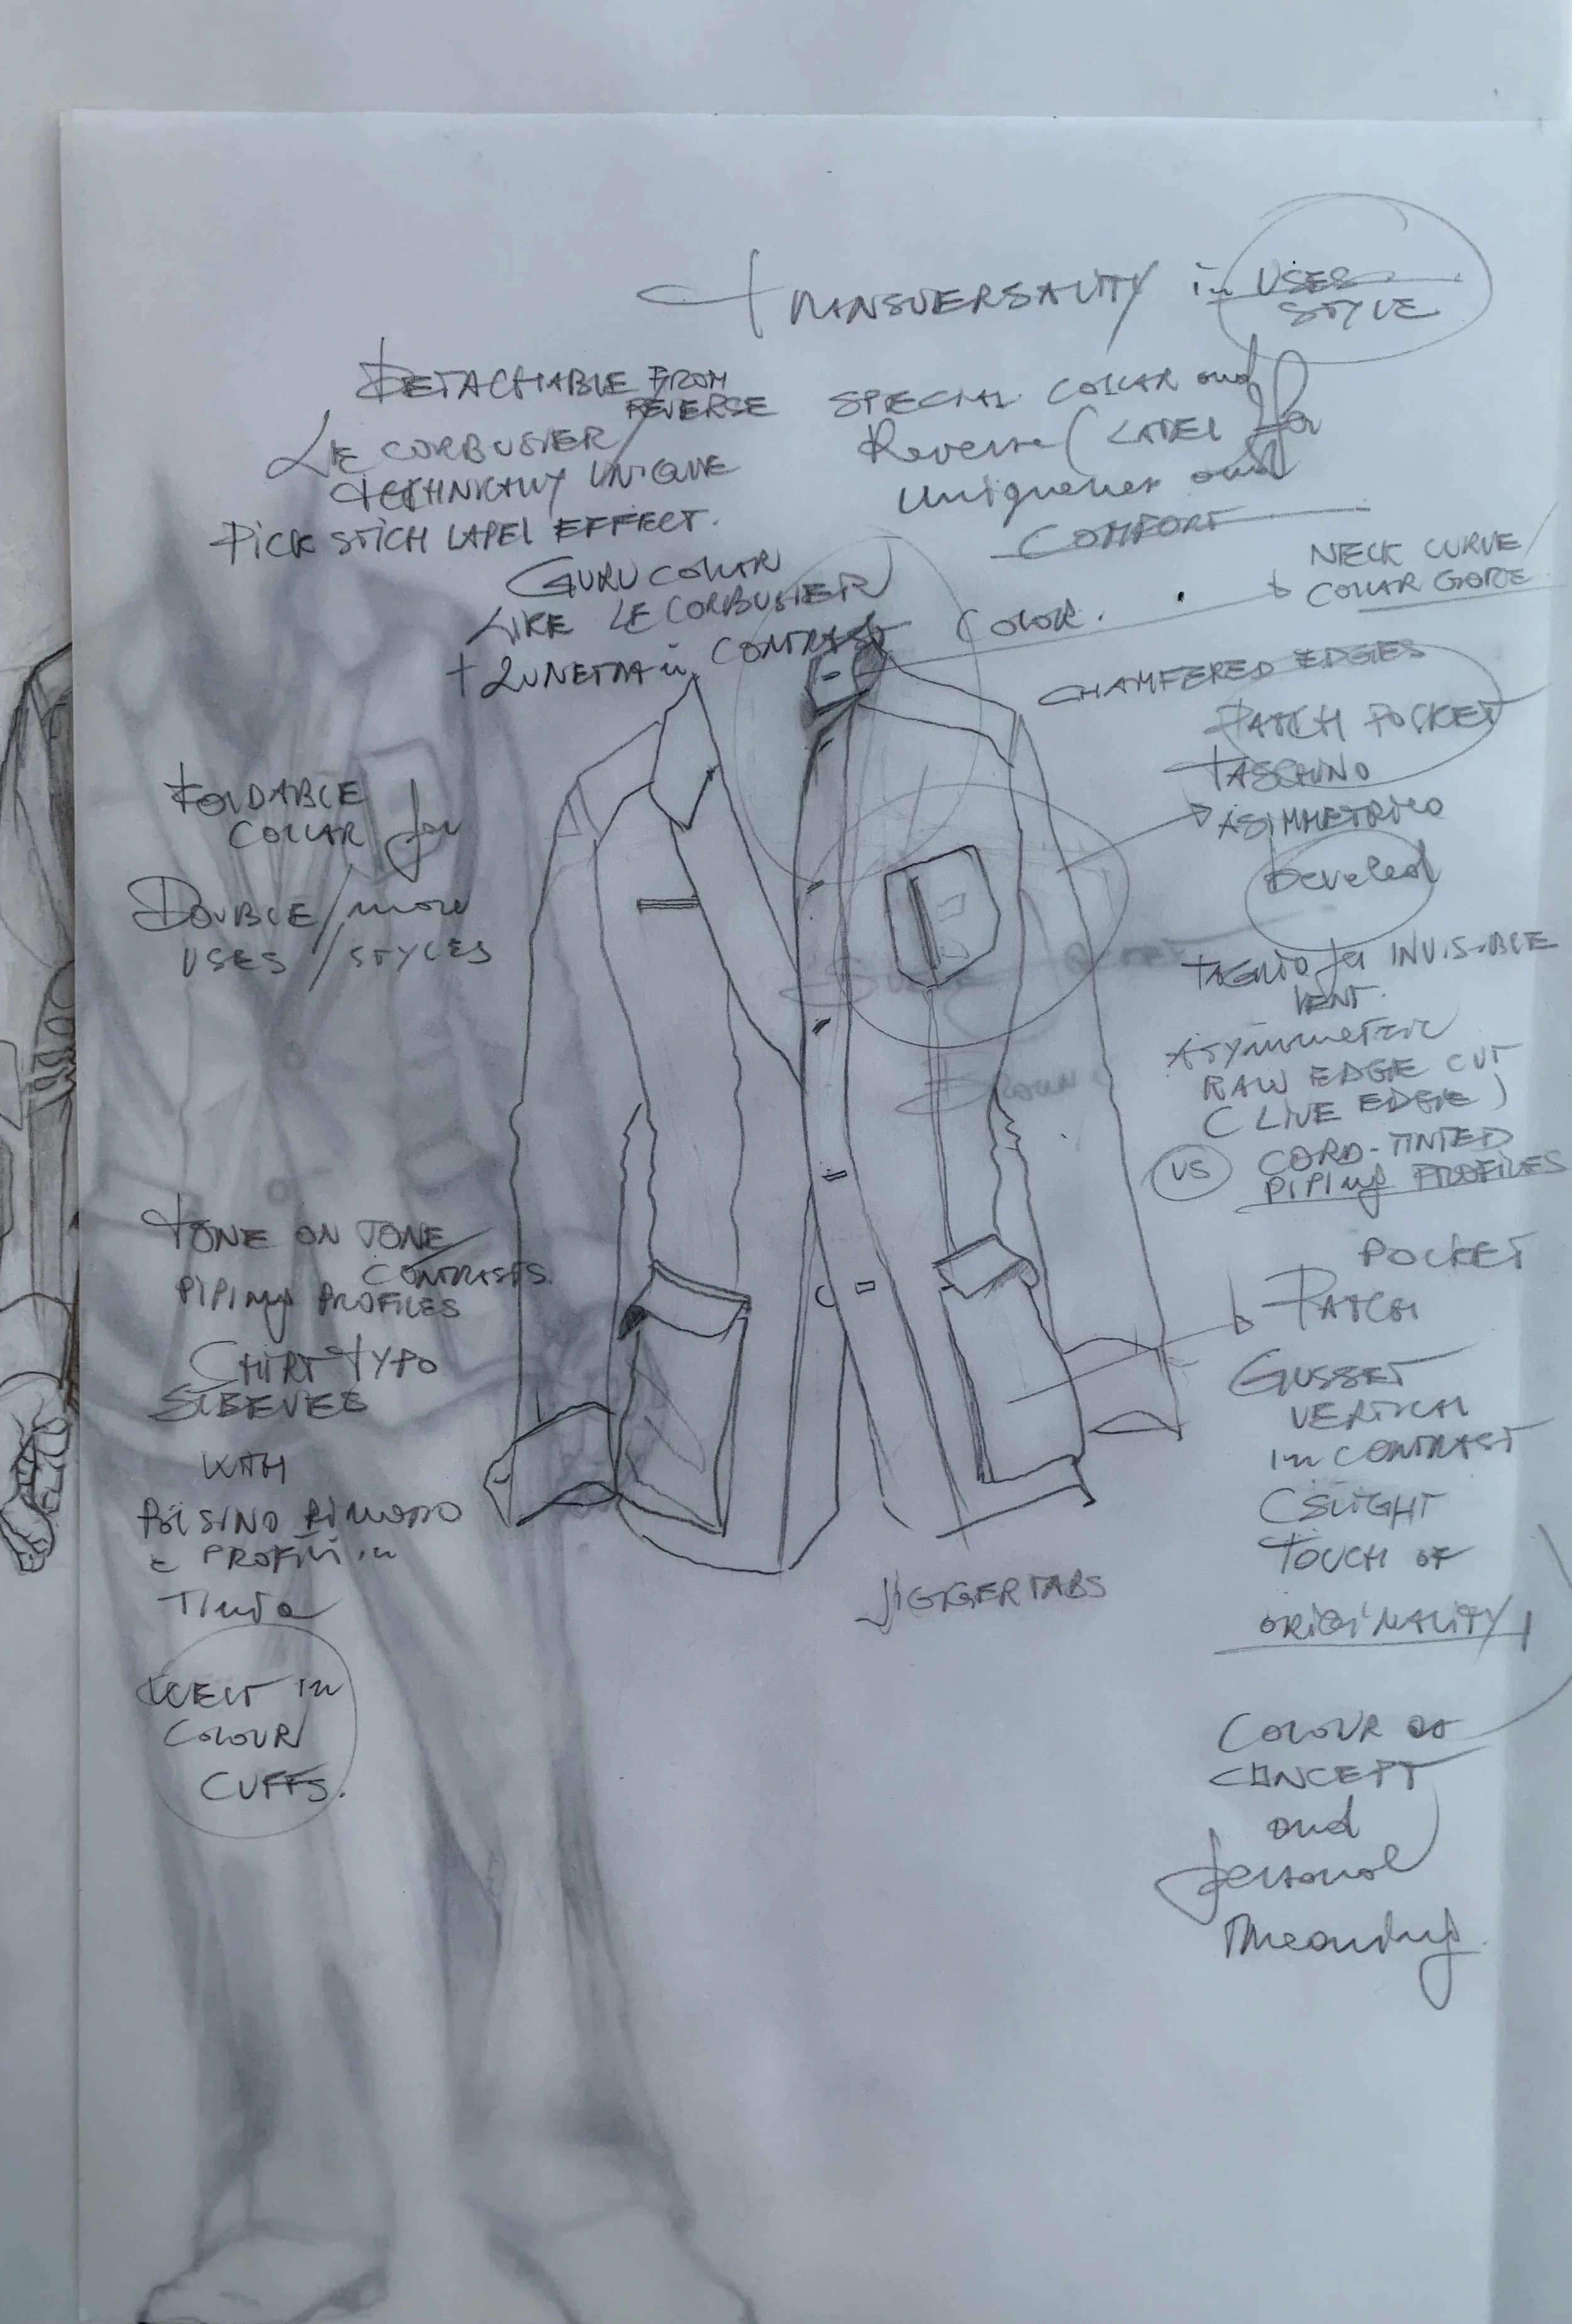 TRANSVERSALITY in USES
STYLE
DETACHABLE FROM
REVERSE
LE CORBUSIER /
TECHNICALLY UNIQUE
PICK STICH LAPEL EFFECT.
SPECIAL COLLAR and
Reverse (LAPEL) for
Uniqueness and
COMFORT
GURU COLLAR
LIKE LE CORBUSIER
+ LUNETTA in CONTRAST
COLOR.
NECK CURVE /
COLLAR GORE
CHAMFERED EDGES
PATCH POCKET
TASCHINO
ASIMMETRICO
beveled
TAGLIO for INVISIBLE
VENT.
Asymmetric
RAW EDGE CUT
(LIVE EDGE)
VS CORD-TINTED
PIPING PROFILES
FOLDABLE
COLLAR for
DOUBLE / more
USES / STYLES
TONE ON TONE
CONTRASTS
PIPING PROFILES
CHIRT TYPO
SLEEVES
WITH
POLSINO
e PROFILI in
Tinta
WELT in
COLOUR
CUFFS.
POCKET
PATCH
GUSSET
VERTICAL
in CONTRAST
(SLIGHT
TOUCH OF
ORIGINALITY)
JIGGER TABS
COLOUR as
CONCEPT
and
personal
Meaning.